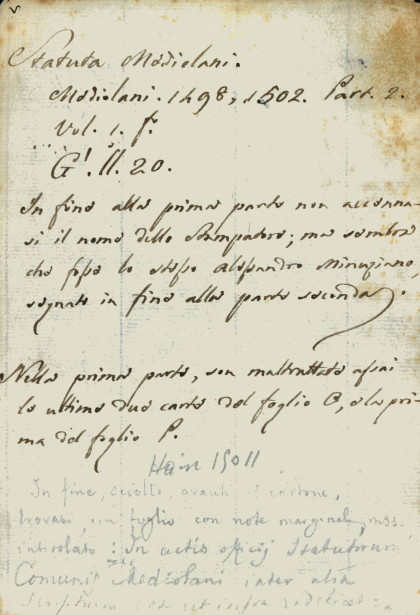 Statuta Mediolani.
Mediolani. 1498, 1502. Part. 2.
Vol. 1. f.
G'. II. 20.
In fine alla prima parte non accenna-
si il nome dello Stampatore; ma sembra
che fosse lo stesso Alessandro Minuziano,
segnato in fine alla parte seconda.
Nella prima parte, son maltrattate assai
le ultime due carte del foglio O, e la pri-
ma del foglio P.
Hain 15011
In fine, avanti il cartone,
trovasi un foglio con note marginali mss.
intitolato: In actis officij Statutorum
Comunis Mediolani inter alia